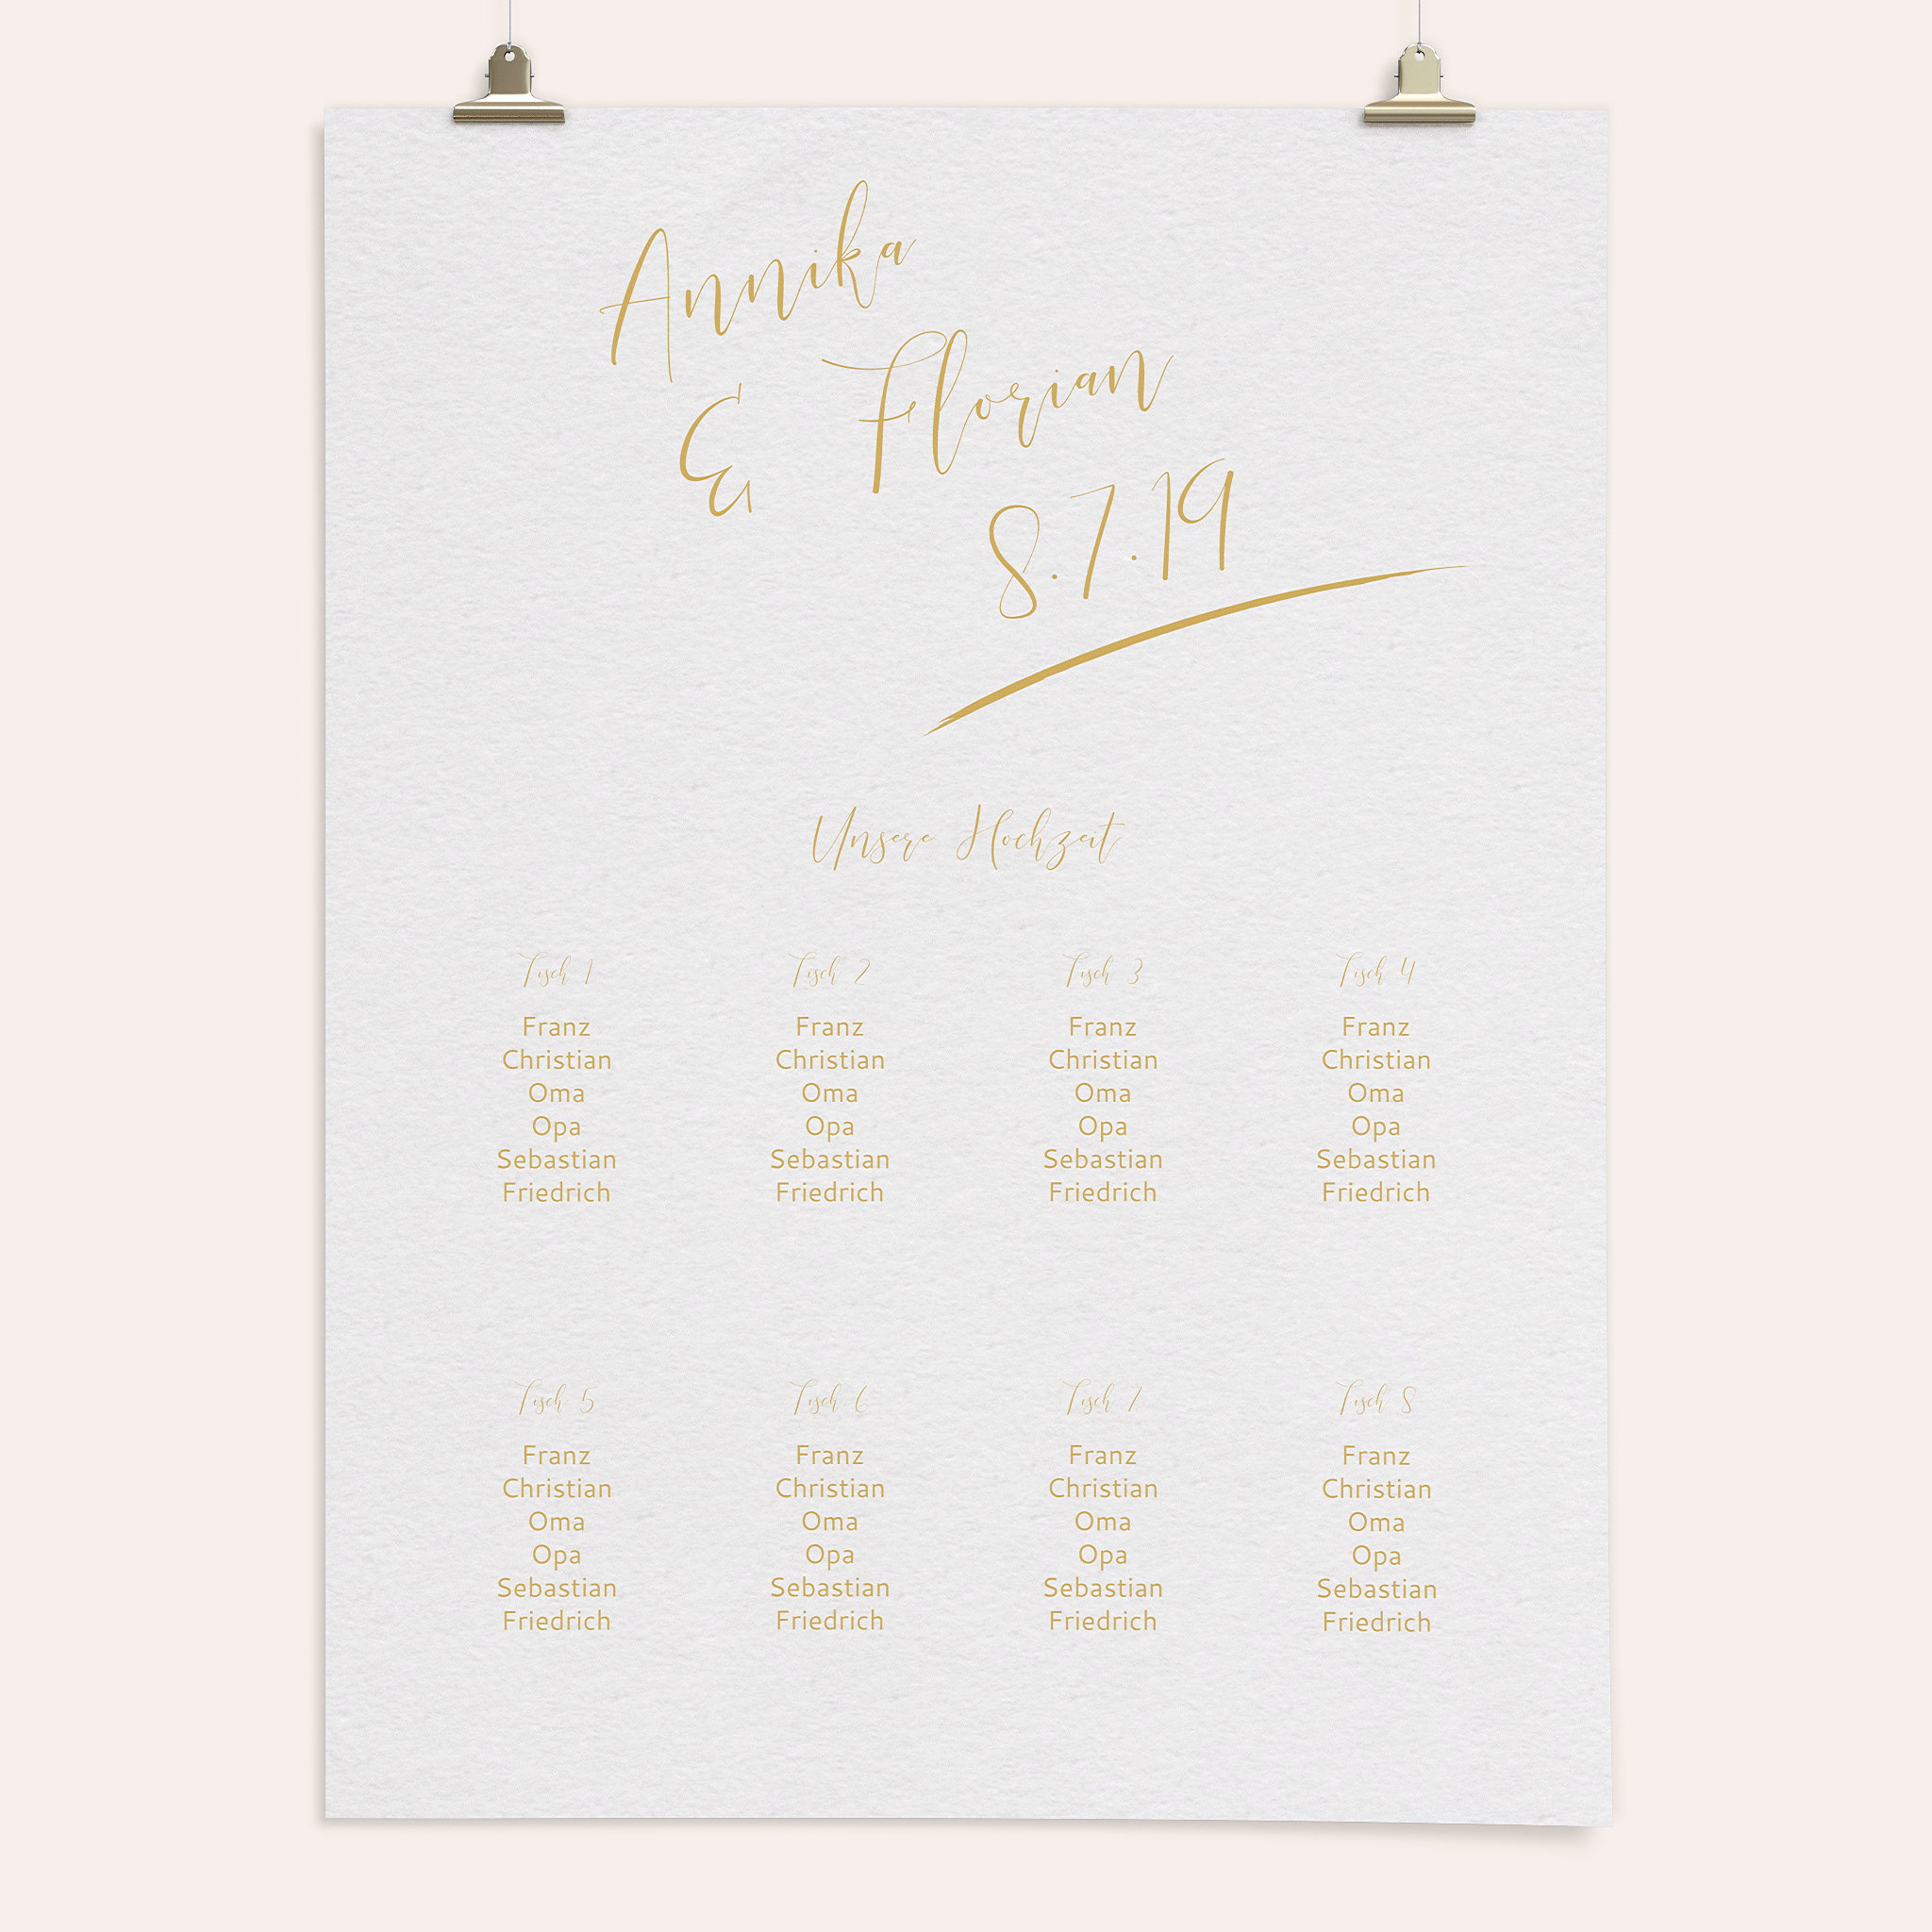 Annika
& Florian
8.7.19
Unsere Hochzeit
Tisch 1
Franz
Christian
Oma
Opa
Sebastian
Friedrich
Tisch 2
Franz
Christian
Oma
Opa
Sebastian
Friedrich
Tisch 3
Franz
Christian
Oma
Opa
Sebastian
Friedrich
Tisch 4
Franz
Christian
Oma
Opa
Sebastian
Friedrich
Tisch 5
Franz
Christian
Oma
Opa
Sebastian
Friedrich
Tisch 6
Franz
Christian
Oma
Opa
Sebastian
Friedrich
Tisch 7
Franz
Christian
Oma
Opa
Sebastian
Friedrich
Tisch 8
Franz
Christian
Oma
Opa
Sebastian
Friedrich